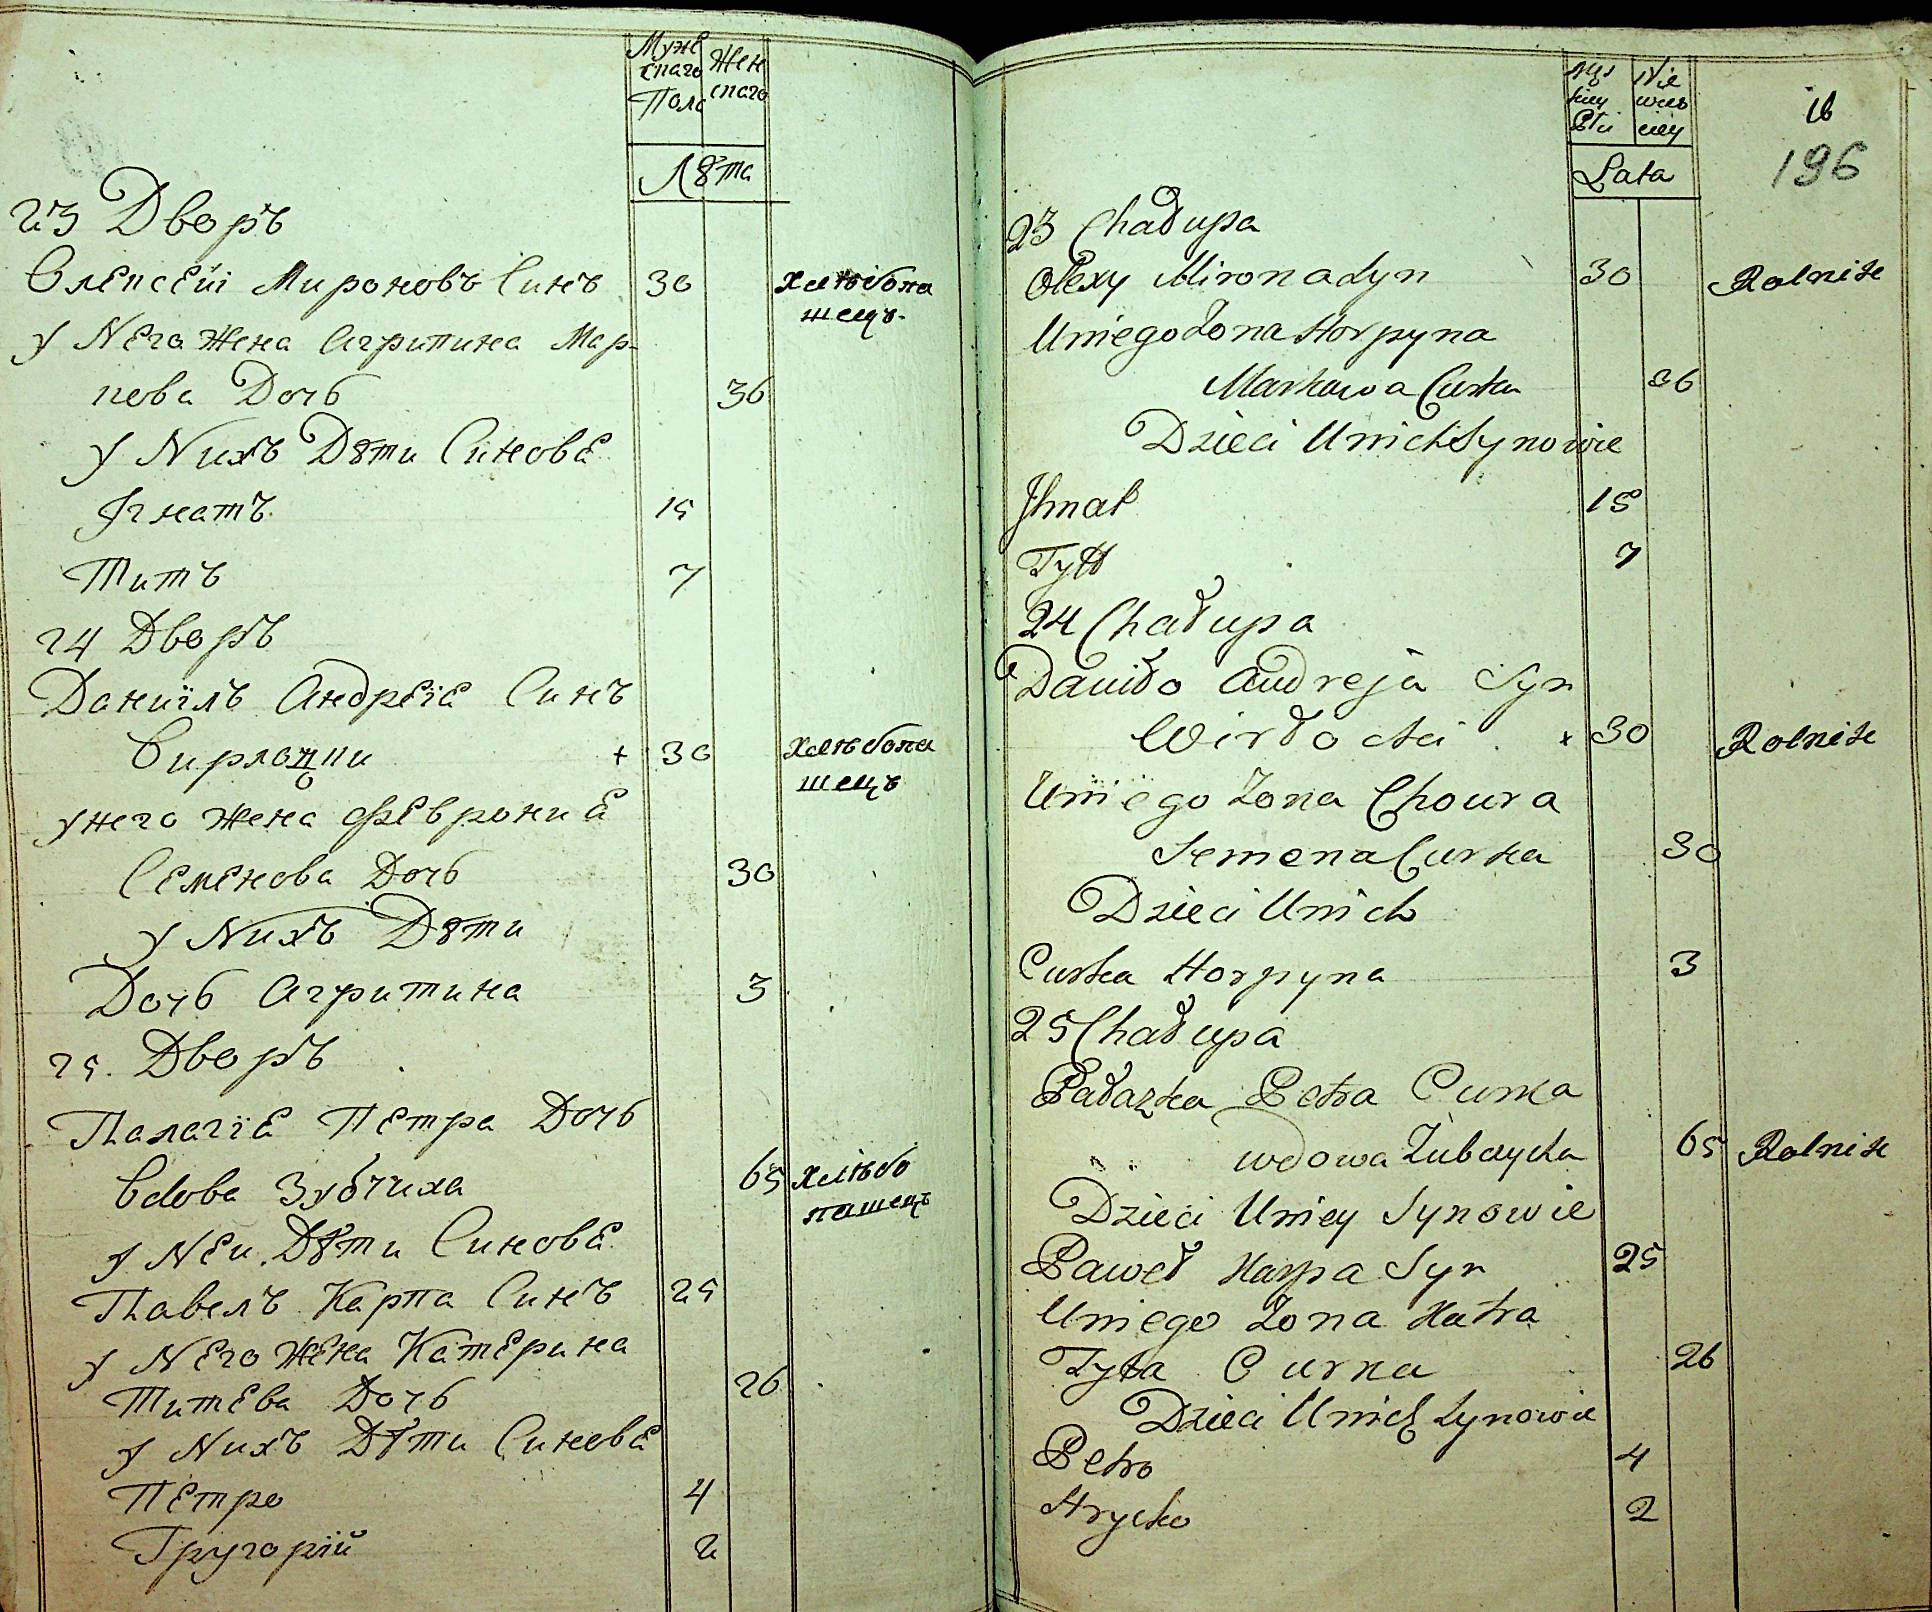 Муже
скаго
Пола
Жен
скаго
Лѣта
23 Дворъ
Олексей Мироновъ Синъ 30 хлѣбопа
шецъ
у Него Жена Агрипина Мар-
кова Дочь 36
у Нихъ Дѣти Синовѣ
Ігнатъ 15
Титъ 7
24 Дворъ
Даниілъ Андреіе Синъ
+ 30 хлѣбопа
шецъ
у него жена Февроние
Семенова Дочь 30
у Нихъ Дѣти
Дочь Агрипина 3
25. Дворъ
Палагіе Петра Дочь
Вдова Зубчиха 65 хлѣбо
пашецъ
у Неи Дѣти Синовѣ
Павелъ Карпа Синъ 25
у Него Жена Катерина
Титева Дочь 26
у Нихъ Дѣти Синовѣ
Петро 4
Григорій 2
Męs
kiey
Płci
Nie
wies
ciey
Lata
16
196
23 Chałupa
Olexy Mirona Syn 30 Rolnik
U niego Żona Horpyna
Markowa Curka 36
Dzieci U nich Synowie
Ihnat 15
Tytt 7
24 Chałupa
Daniło Andreja Syn
Wirłocki x 30 Rolnik
U niego Żona Choura
Semena Curka 30
Dzieci U nich
Curka Horpyna 3
25 Chałupa
Pałazka Petra Curka
wdowa Zubczycha 65 Rolnik
Dzieci U niey Synowie
Paweł Karpa Syn 25
U niego Żona Katra
Tyta Curka 26
Dzieci U nich Synowie
Petro 4
Hrycko 2